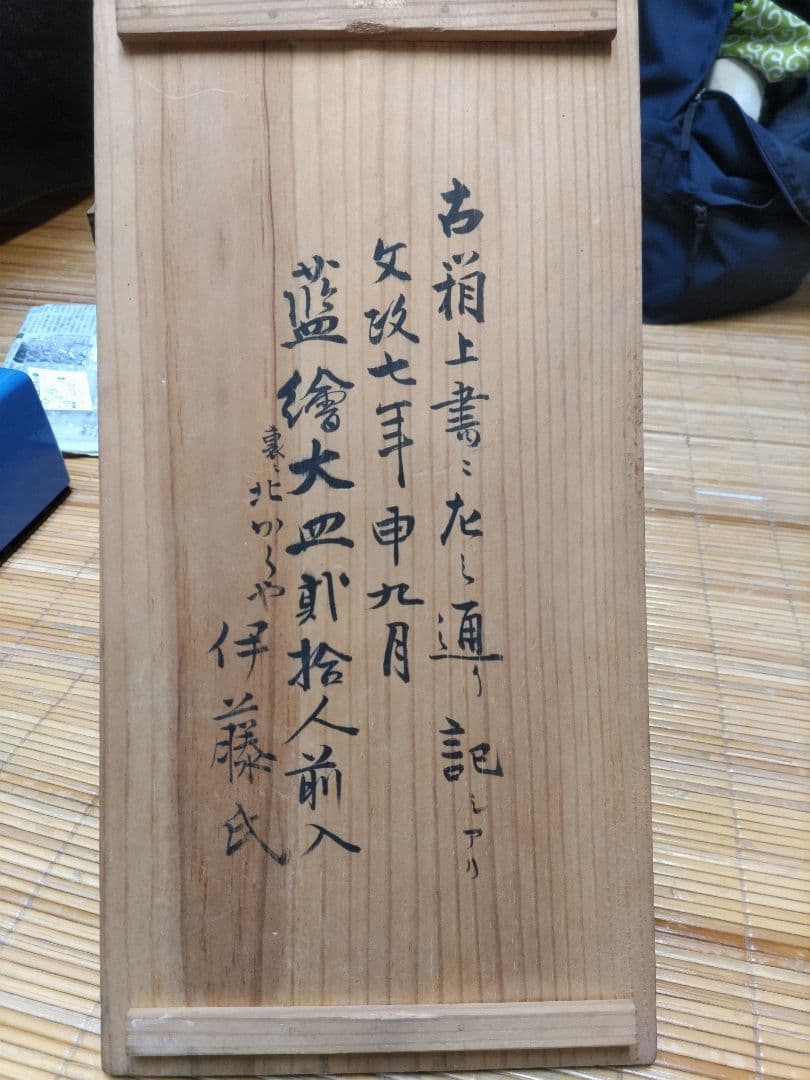 古箱上書ニ左之通り記シアリ
文政七年申九月
藍繪大皿貳拾人前入
裏ニ北かくや
伊藤氏